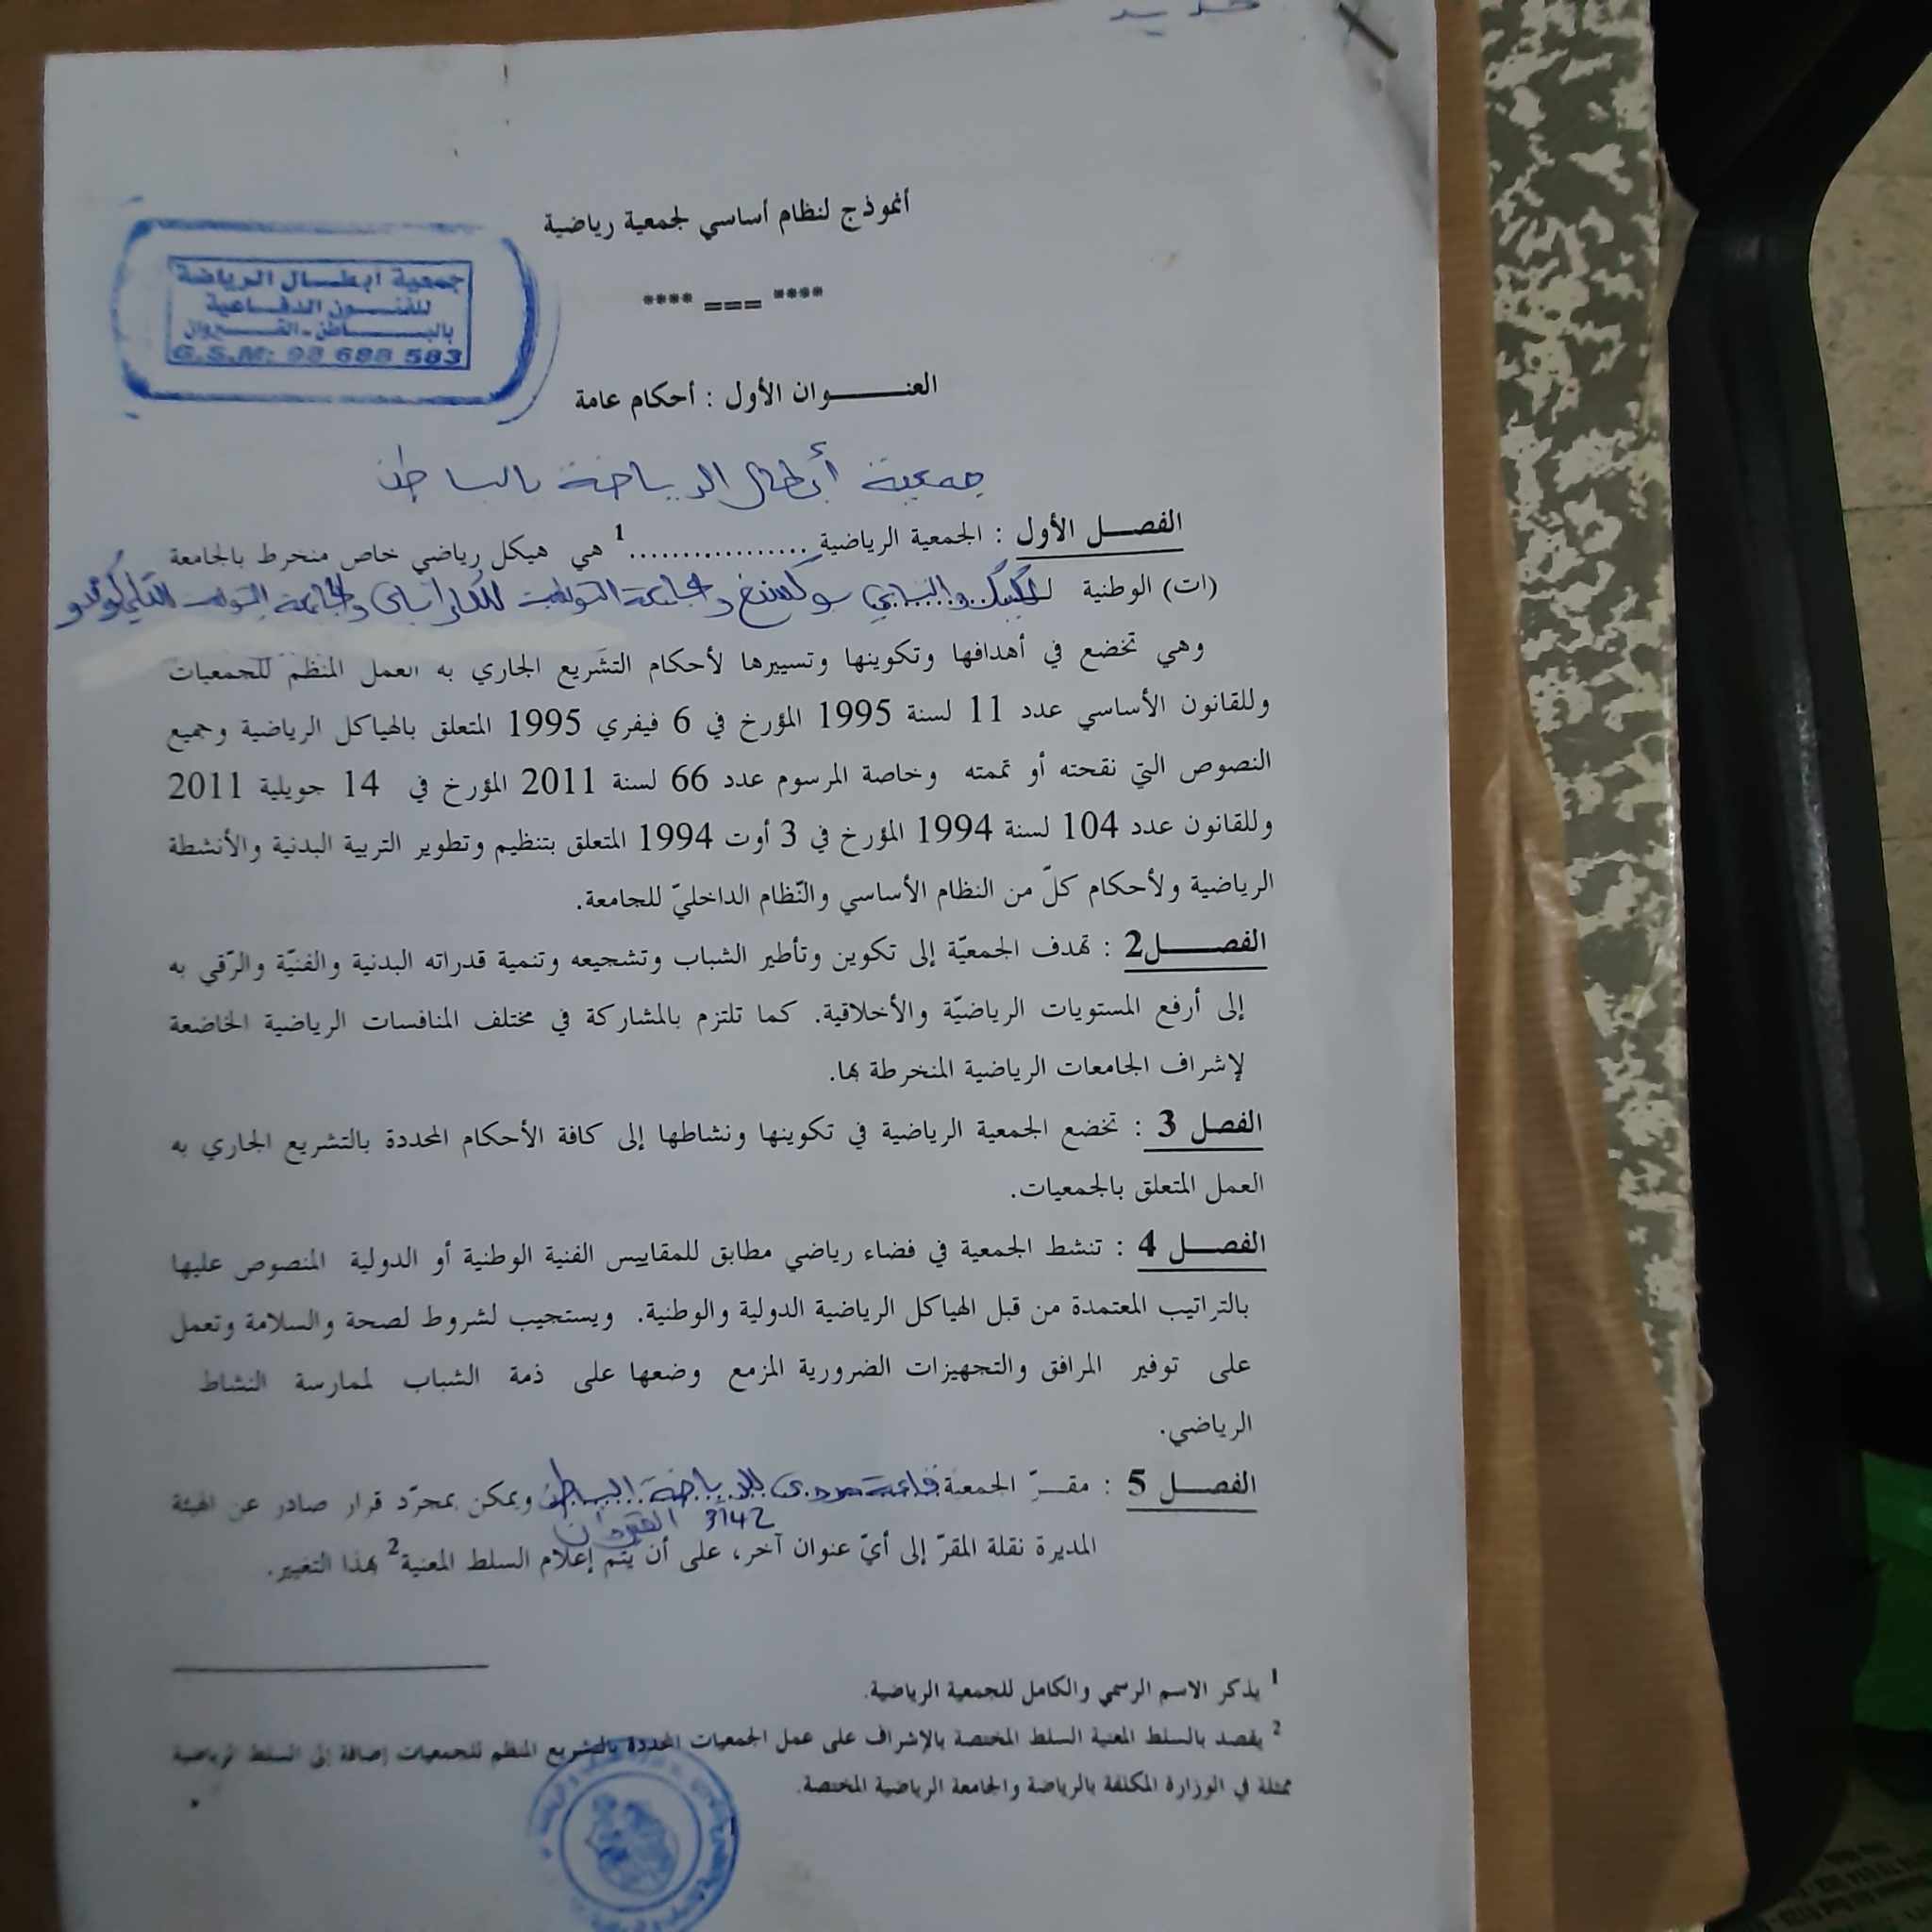 جديد
أنموذج لنظام أساسي لجمعية رياضية
**** === ****
جمعية أبطال الرياضة
للفنون الدفاعية
بالباطن - القيروان
G.S.M: 98 688 583
العنـــــوان الأول : أحكام عامة
جمعية أبطال الرياضة بالباطن
الفصـــل الأول : الجمعية الرياضية ................1 هي هيكل رياضي خاص منخرط بالجامعة
(ات) الوطنية للكيك والتاي بوكسينغ والجامعة التونسية للكاراتاي والجامعة التونسية للتايكوندو
وهي تخضع في أهدافها وتكوينها وتسييرها لأحكام التشريع الجاري به العمل المنظم للجمعيات
وللقانون الأساسي عدد 11 لسنة 1995 المؤرخ في 6 فيفري 1995 المتعلق بالهياكل الرياضية وجميع
النصوص التي نقحته أو تممته وخاصة المرسوم عدد 66 لسنة 2011 المؤرخ في 14 جويلية 2011
وللقانون عدد 104 لسنة 1994 المؤرخ في 3 أوت 1994 المتعلق بتنظيم وتطوير التربية البدنية والأنشطة
الرياضية ولأحكام كلّ من النظام الأساسي والنّظام الداخليّ للجامعة.
الفصـــــل2 : تهدف الجمعيّة إلى تكوين وتأطير الشباب وتشجيعه وتنمية قدراته البدنية والفنيّة والرّقي به
إلى أرفع المستويات الرياضيّة والأخلاقية. كما تلتزم بالمشاركة في مختلف المنافسات الرياضية الخاضعة
لإشراف الجامعات الرياضية المنخرطة بها.
الفصل 3 : تخضع الجمعية الرياضية في تكوينها ونشاطها إلى كافة الأحكام المحددة بالتشريع الجاري به
العمل المتعلق بالجمعيات.
الفصـــل 4 : تنشط الجمعية في فضاء رياضي مطابق للمقاييس الفنية الوطنية أو الدولية المنصوص عليها
بالتراتيب المعتمدة من قبل الهياكل الرياضية الدولية والوطنية. ويستجيب لشروط لصحة والسلامة وتعمل
على توفير المرافق والتجهيزات الضرورية المزمع وضعها على ذمة الشباب لممارسة النشاط
الرياضي.
الفصـــل 5 : مقــرّ الجمعية قاعة للرياضة الباطن ويمكن بمجرّد قرار صادر عن الهيئة
3142 القيروان
المديرة نقلة المقرّ إلى أيّ عنوان آخر، على أن يتم إعلام السلط المعنية2 بهذا التغيير.
1 يذكر الاسم الرسمي والكامل للجمعية الرياضية.
2 يقصد بالسلط المعنية السلط المختصة بالإشراف على عمل الجمعيات المحددة بالتشريع المنظم للجمعيات إضافة إلى السلط الرياضية
ممثلة في الوزارة المكلفة بالرياضة والجامعة الرياضية المختصة.